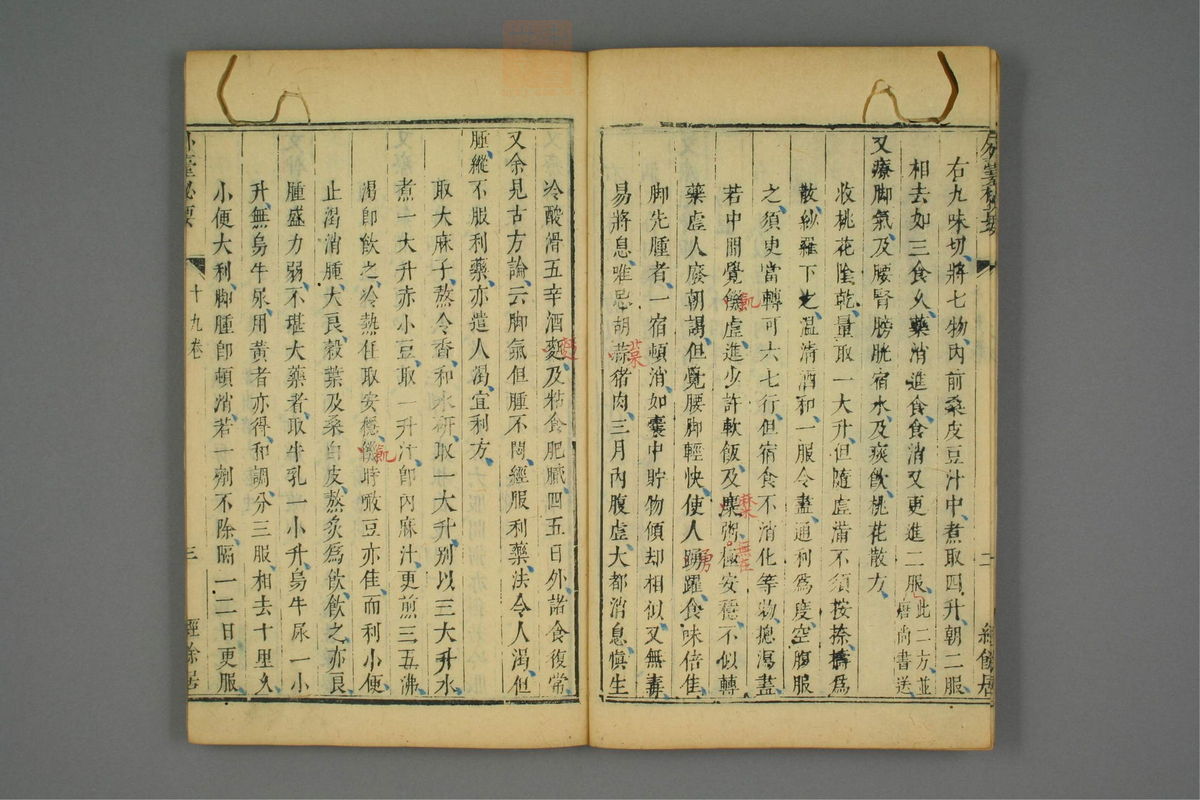 右九味切將七物內前桑皮豆汁中煮取四升朝二服
相去如三食久藥消進食食消又更進二服此二方並
唐尚書送
又療脚氣及腰腎膀胱宿水及痰飲桃花散方
收桃花陰乾量取一大升但隨虛滿不須按捺擣爲
散紗羅下之溫清酒和一服令盡通利爲度空腹服
之須臾當轉可六七行但宿食不消化等物總瀉盡
若中間覺饑虛進少許軟飯及糜粥極安穩不似轉
藥虛人廢朝謁但覺腰脚輕快使人踴躍食味倍佳
脚先腫者一宿頓消如囊中貯物傾却相似又無毒
易將息唯忌胡蒜猪肉三月內腹虛大都消息慎生
冷酸滑五辛酒麪及粘食肥膩四五日外諸食復常
又余見古方論云脚氣但腫不悶經服利藥法令人渴但
腫縱不服利藥亦遣人渴宜利方
取大麻子熬令香和水研取一大升別以三大升水
煮一大升赤小豆取一升汁卽內麻汁更煎三五沸
渴卽飲之冷熱任取安穩饑時啖豆亦佳而利小便
止渴消腫大良穀葉及桑白皮熬炙爲飲飲之亦良
腫盛力弱不堪大藥者取牛乳一小升烏牛尿一小
升無烏牛尿用黃者亦得和調分三服相去十里久
小便大利脚腫卽頓消若一劑不除隔一二日更服
十九卷
三
經餘居